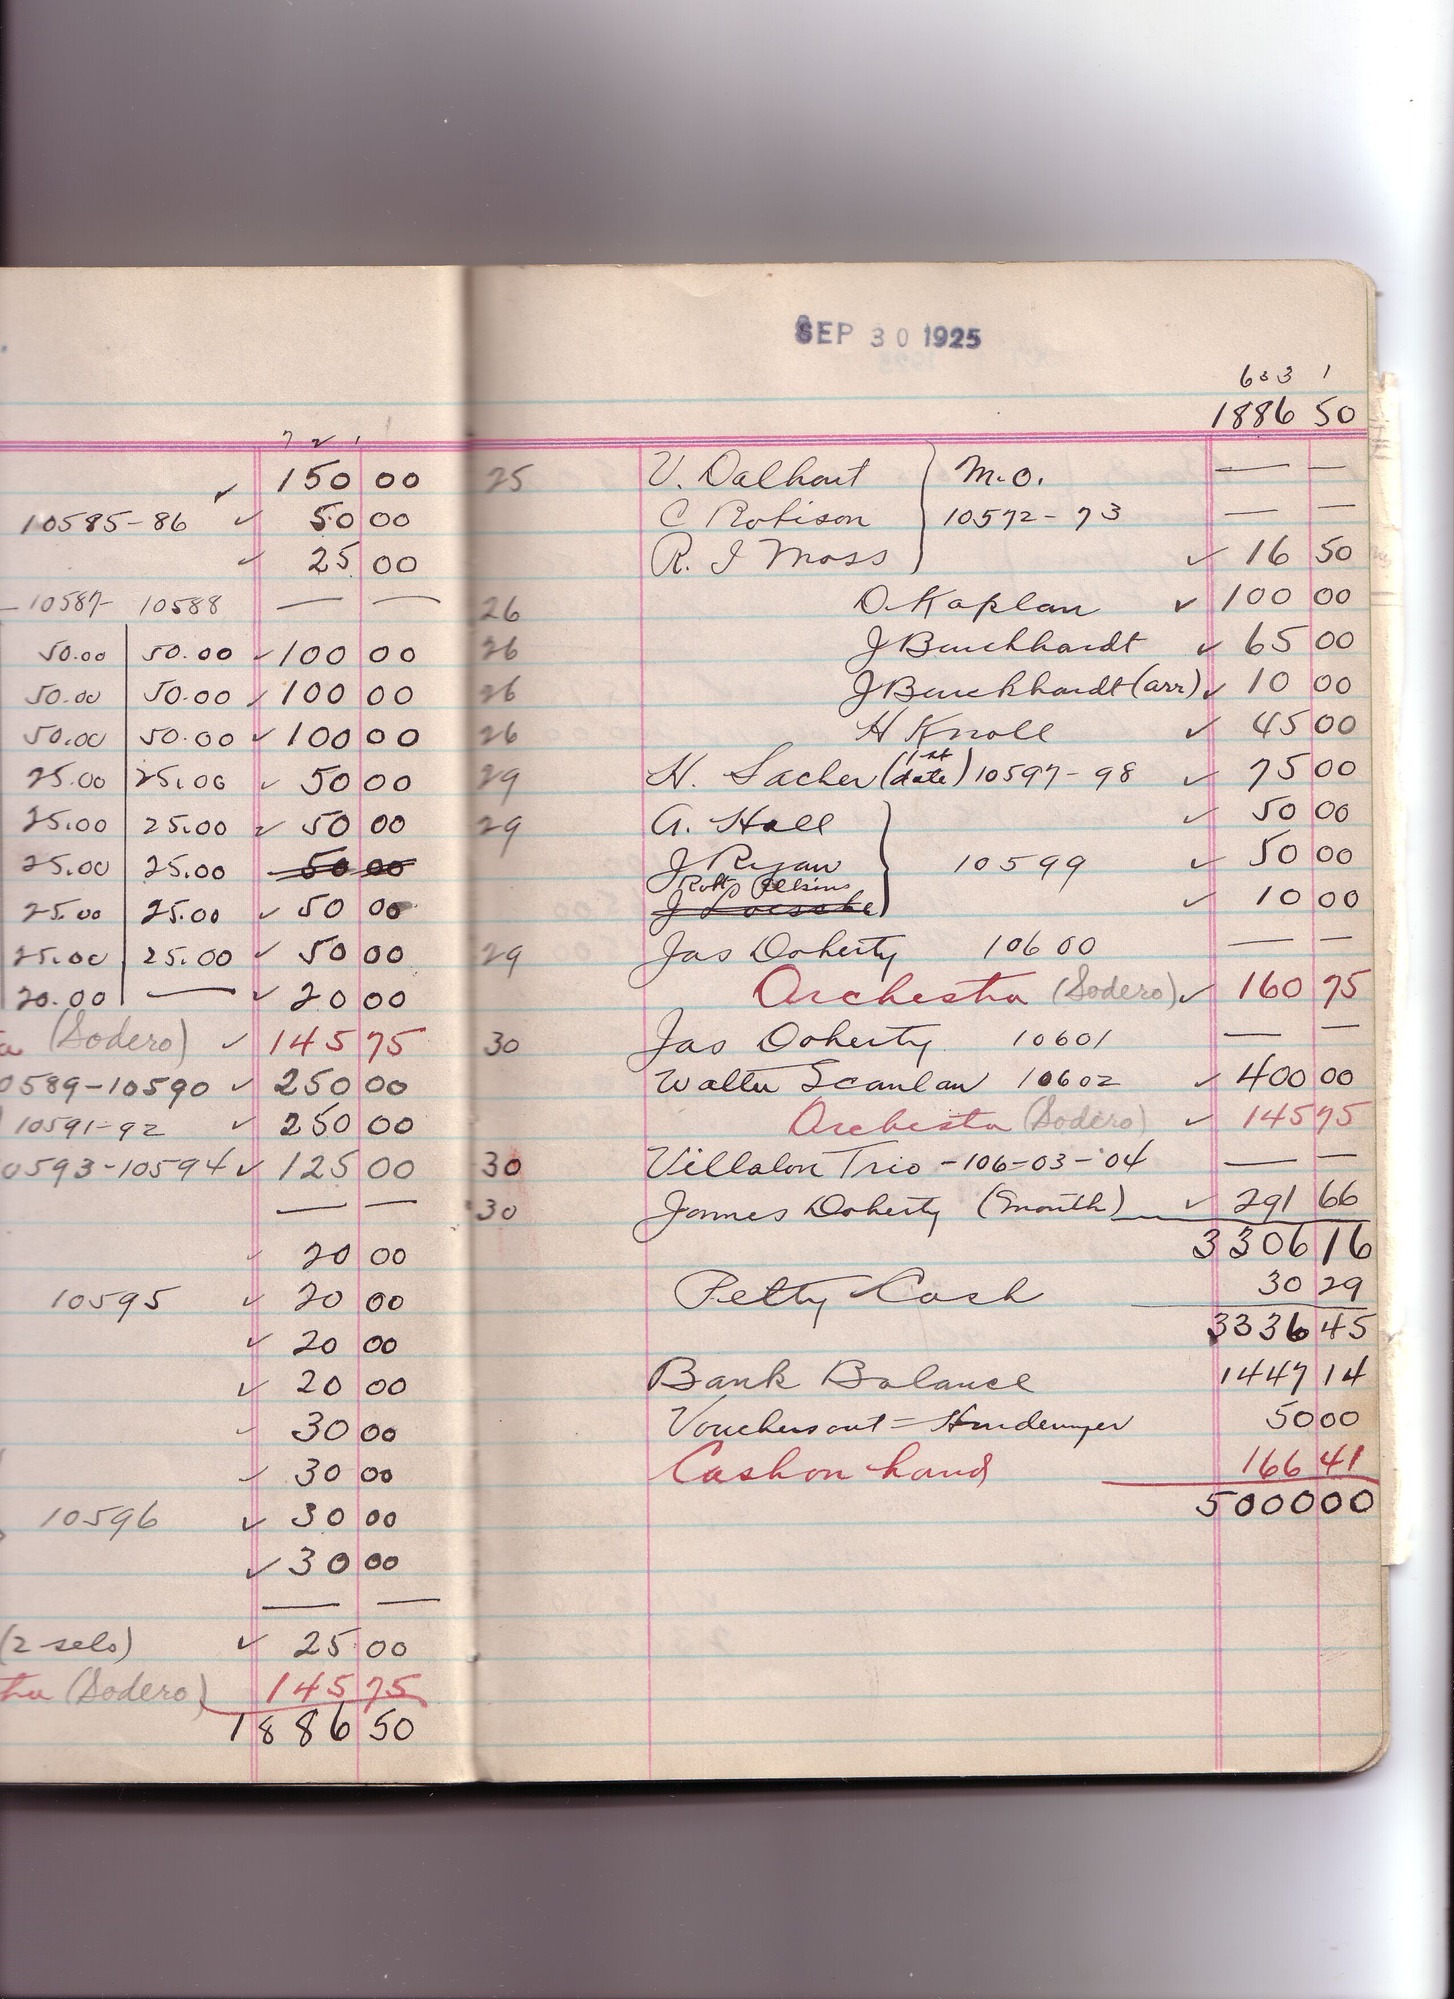 7 2 1
150 00
10585-86 50 00
25 00
10587- 10588 — —
50.00 50.00 100 00
50.00 50.00 100 00
50.00 50.00 100 00
25.00 25.00 50 00
25.00 25.00 50 00
25.00 25.00 50 00
25.00 25.00 50 00
25.00 25.00 50 00
20.00 — 20 00
(Sodero) 145 75
0589-10590 250 00
10591-92 250 00
0593-10594 125 00
— —
20 00
10595 20 00
20 00
20 00
30 00
30 00
10596 30 00
30 00
— —
(2 sels) 25 00
(Sodero) 145 75
1886 50
SEP 30 1925
633 1
1886 50
25 V. Dalhart M.O. — —
C Robison 10572-73 — —
R. J Moss 16 50
26 D. Kaplan 100 00
26 J Burkhardt 65 00
26 J Burkhardt (arr) 10 00
26 H Knoll 45 00
29 H. Sacher (1st date) 10597-98 75 00
29 A. Hall 50 00
J Ryan 10599 50 00
Robt
J 10 00
29 Jas Doherty 10600 — —
Orchestra (Sodero) 160 75
30 Jas Doherty 10601 — —
Walter Scanlan 10602 400 00
Orchestra (Sodero) 145 75
30 Villalon Trio -106-03-04 — —
30 James Doherty (month) 291 66
3306 16
Petty Cash 30 29
3336 45
Bank Balance 1447 14
Vouchers out = 50 00
Cash on hand 166 41
5000 00